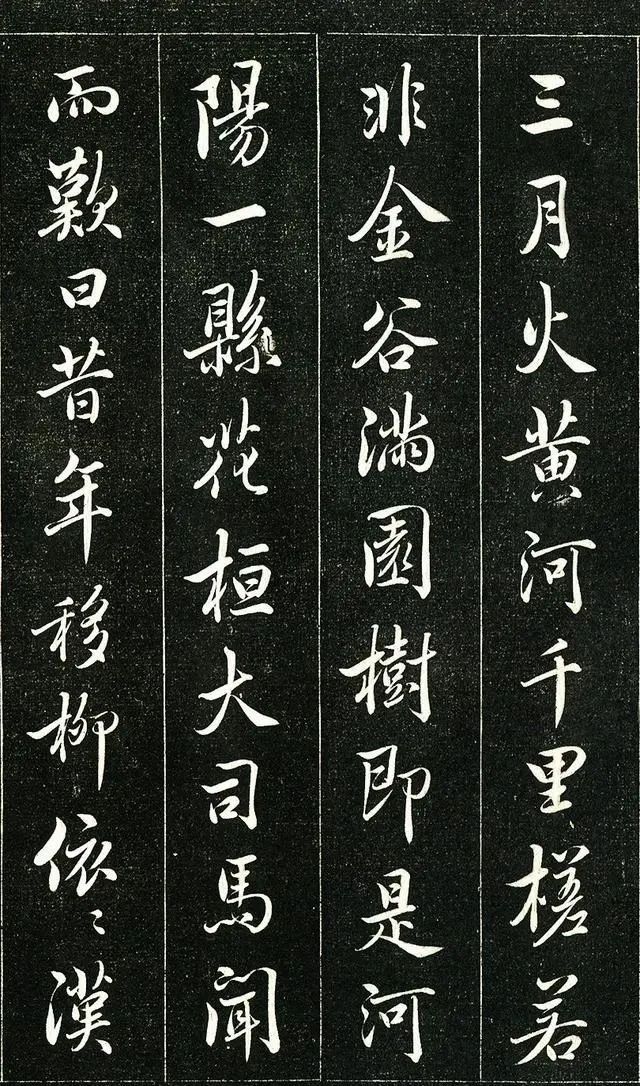 三月火黄河千里槎若
非金谷滿園樹即是河
陽一縣花桓大司馬聞
而歎曰昔年移柳依〻漢